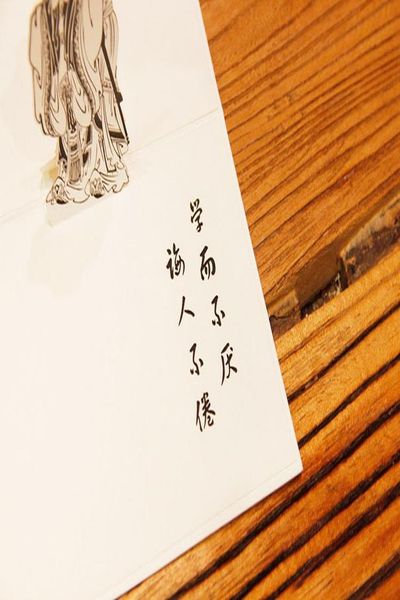 学而不厌
诲人不倦